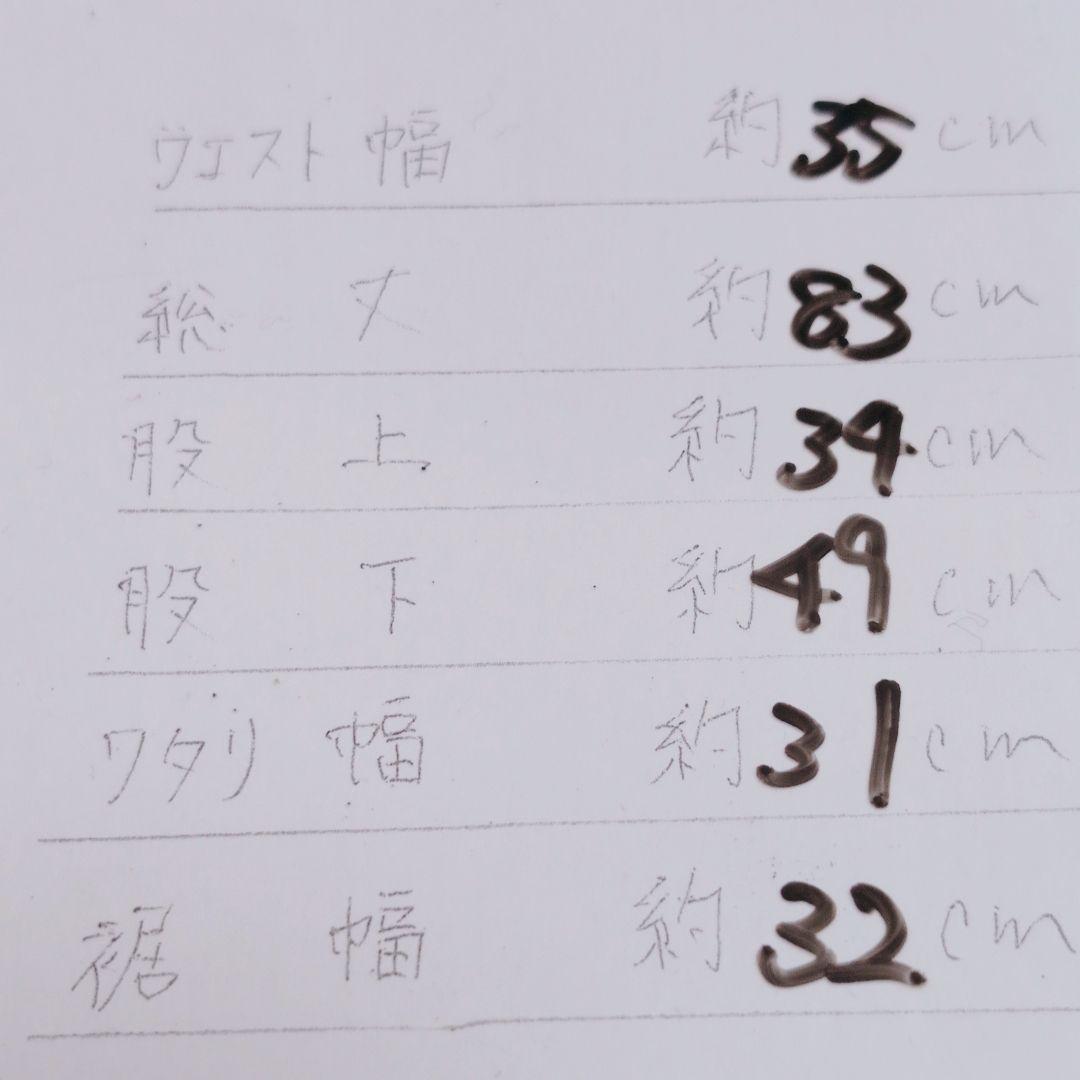 ウエスト幅 約35cm
総丈 約83cm
股上 約34cm
股下 約49cm
ワタリ幅 約31cm
裾幅 約32cm